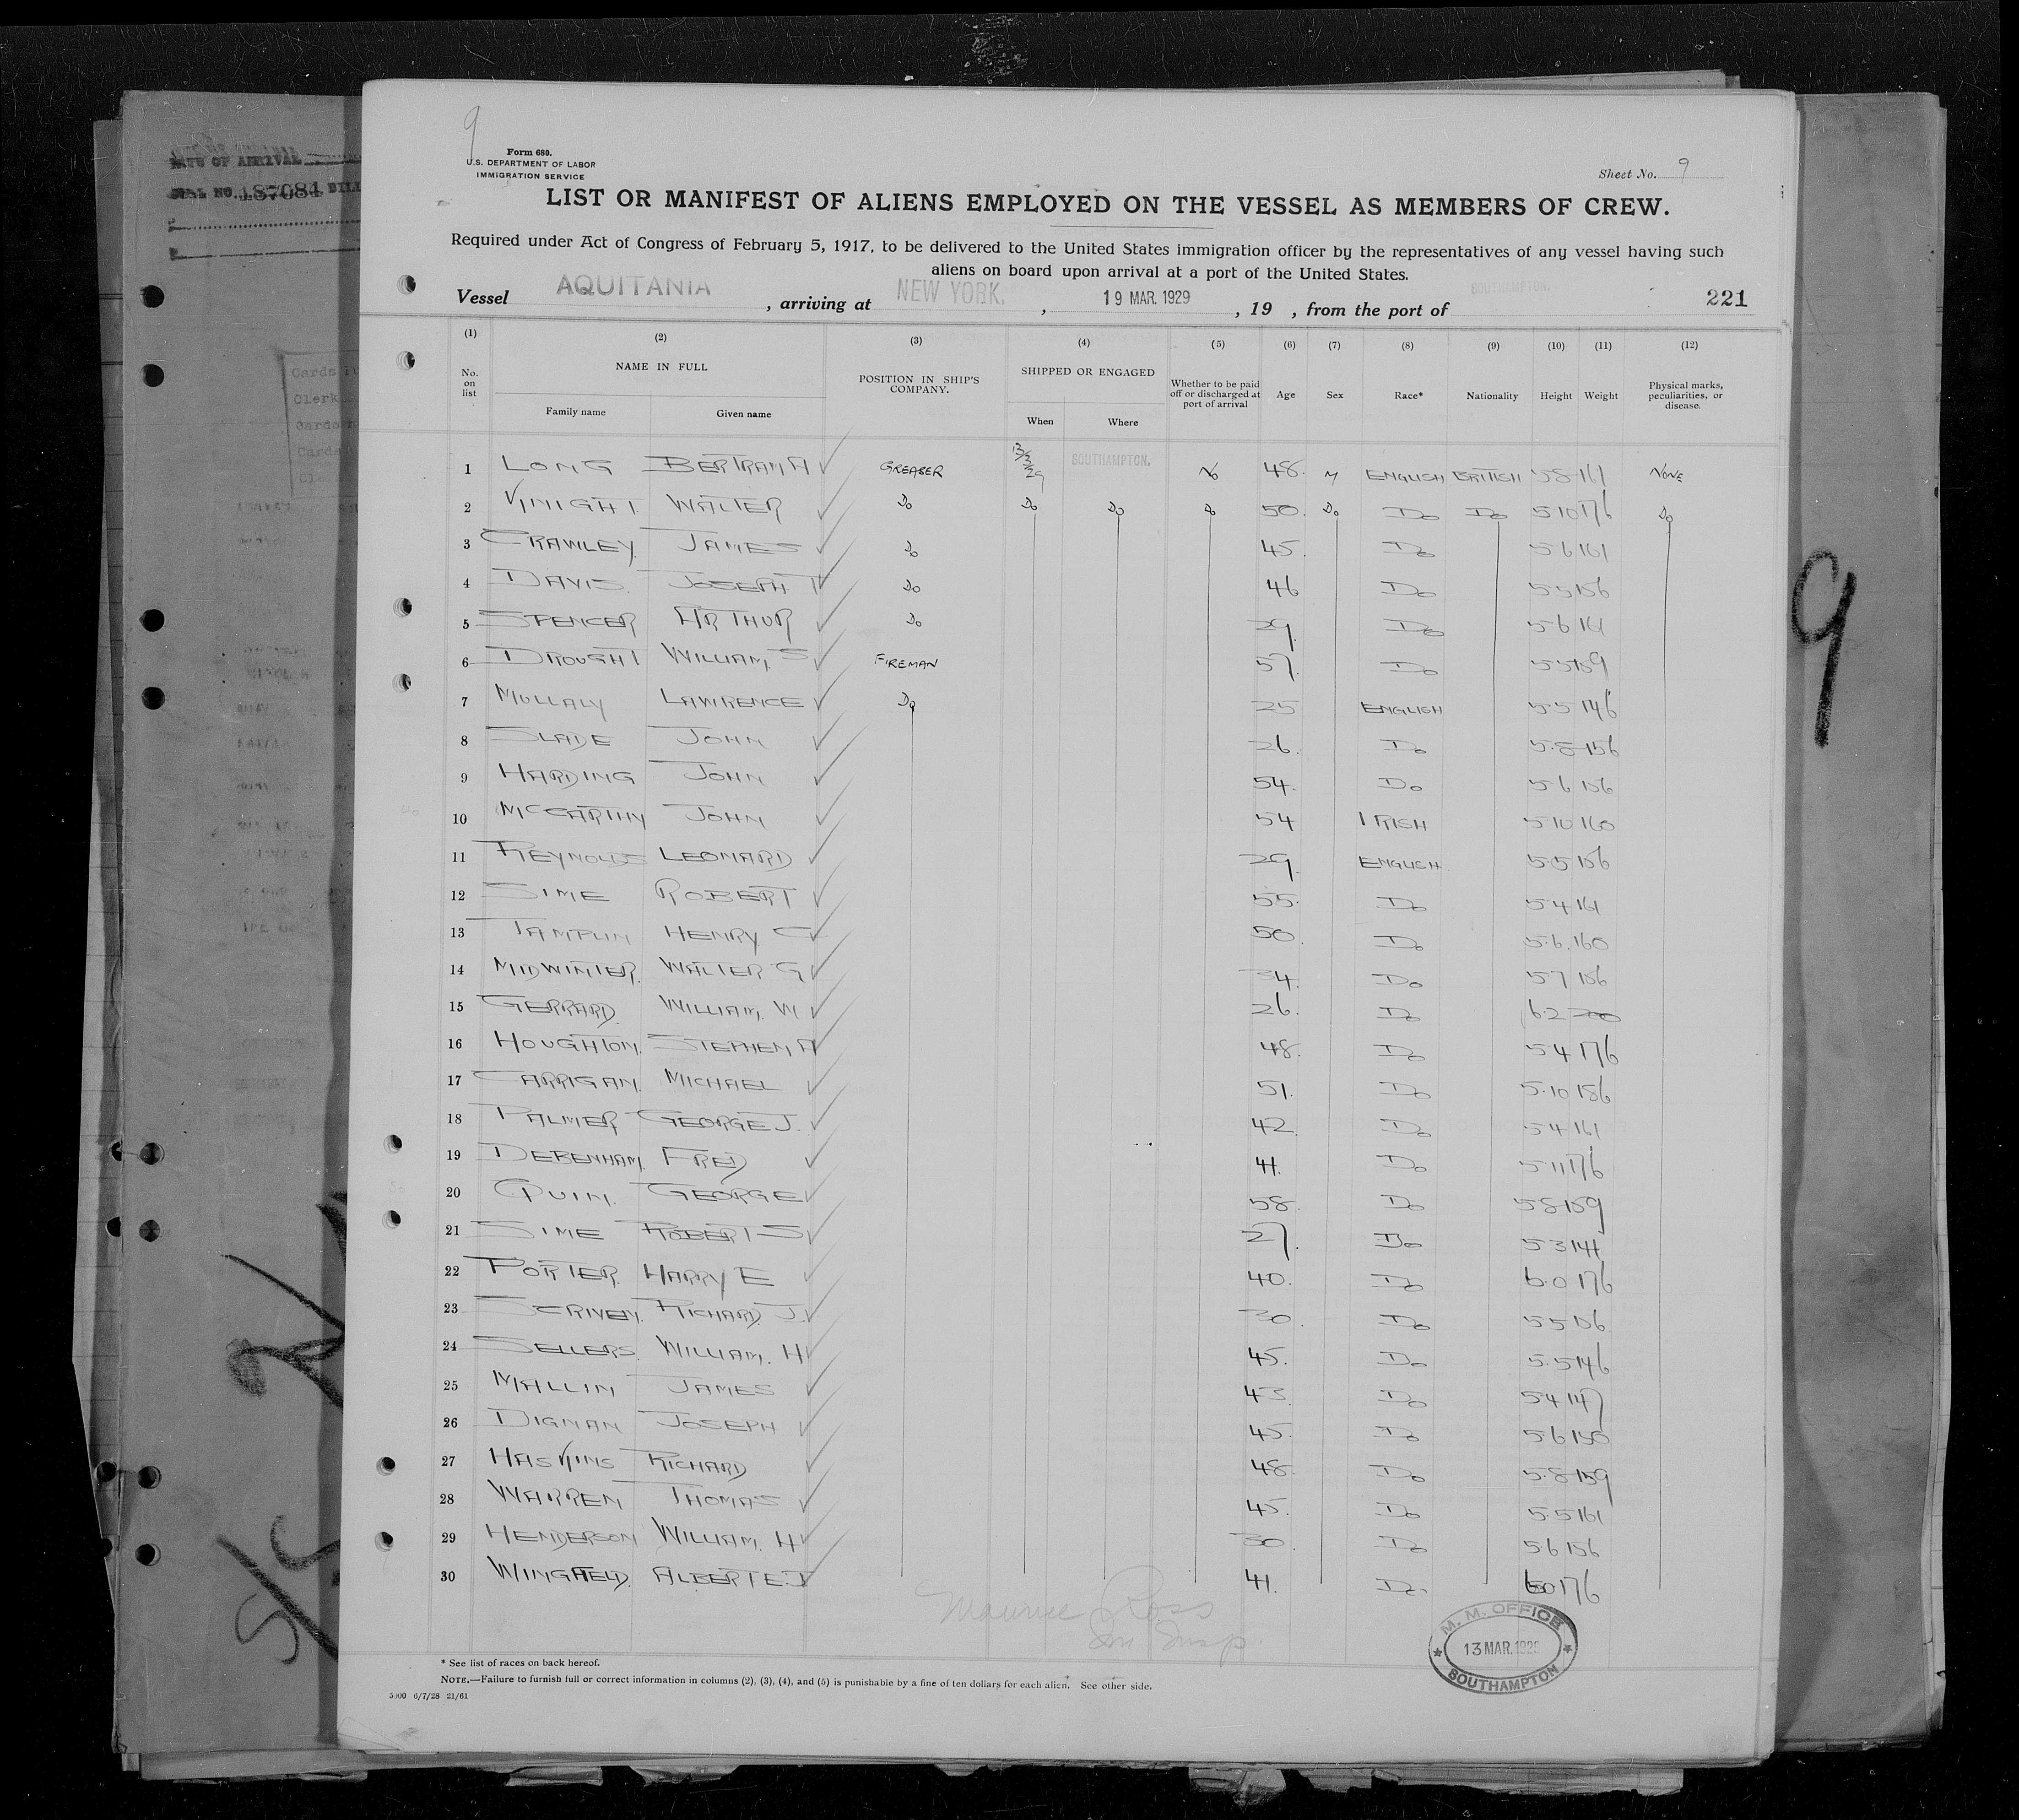 9
Form 680.
U.S. DEPARTMENT OF LABOR
IMMIGRATION SERVICE
Sheet No. 9
LIST OR MANIFEST OF ALIENS EMPLOYED ON THE VESSEL AS MEMBERS OF CREW.
Required under Act of Congress of February 5, 1917, to be delivered to the United States immigration officer by the representatives of any vessel having such
aliens on board upon arrival at a port of the United States.
Vessel AQUITANIA, arriving at NEW YORK., 19 MAR. 1929, 19 , from the port of SOUTHAMPTON. 221
(1) (2) (3) (4) (5) (6) (7) (8) (9) (10) (11) (12)
No. on list NAME IN FULL POSITION IN SHIP'S COMPANY. SHIPPED OR ENGAGED Whether to be paid off or discharged at port of arrival Age Sex Race* Nationality Height Weight Physical marks, peculiarities, or disease.
Family name Given name When Where
1 LONG BERTRAM A GREASER 13/3/29 SOUTHAMPTON. No 48. M ENGLISH BRITISH 5 8 161 NONE
2 KNIGHT WALTER Do Do Do Do 50. Do Do Do 5 10 176 Do
3 CRAWLEY JAMES Do 45. Do 5 6 161
4 DAVIS JOSEPH T Do 46 Do 5 5 156
5 SPENCER ARTHUR Do 29. Do 5 6 161
6 DROUGHT WILLIAM. S FIREMAN 57. Do 5 5 159
7 MULLALY LAWRENCE Do 25 ENGLISH 5.5 146
8 SLADE JOHN 26. Do 5.8 156
9 HARDING JOHN 54. Do 5 6 156
10 McCARTHY JOHN 54 IRISH 5 10 160
11 REYNOLDS LEONARD 29. ENGLISH. 5.5 156
12 SIME ROBERT 55. Do 5 4 161
13 TAMPLIN HENRY C 50. Do 5.6. 160
14 MIDWINTER. WALTER G 34. Do 5 7 156
15 GERRARD. WILLIAM. W 26. Do 6.2 200
16 HOUGHTON. STEPHEN A 48. Do 5 4 176
17 CARRIGAN. MICHAEL 51. Do 5.10 186
18 PALMER GEORGE J. 42. Do 5 4 161
19 DEBENHAM. FRED 41. Do 5 11 176
20 QUIN. GEORGE 58. Do 5 8 159
21 SIME ROBERT S 27. Do 5 3 141
22 PORTER. HARRY E 40. Do 6.0 176
23 SCRIVEN. RICHARD. J. 30. Do 5 5 156
24 SELLERS. WILLIAM. H 45. Do 5.5 146
25 MALLIN JAMES 43. Do 5 4 147
26 DIGNAN JOSEPH 45. Do 5.6 150
27 HASKINS RICHARD 48. Do 5.8 159
28 WARREN THOMAS 45. Do 5.5 161
29 HENDERSON WILLIAM. H 30. Do 5 6 156
30 WINGFIELD. ALBERT E.J 41. Do. 6 0 176
Maurice Ross
Im Insp.
M. M. OFFICE
13 MAR. 1929
SOUTHAMPTON
* See list of races on back hereof.
NOTE.—Failure to furnish full or correct information in columns (2), (3), (4), and (5) is punishable by a fine of ten dollars for each alien. See other side.
5000 6/7/28 21/61
9
187084